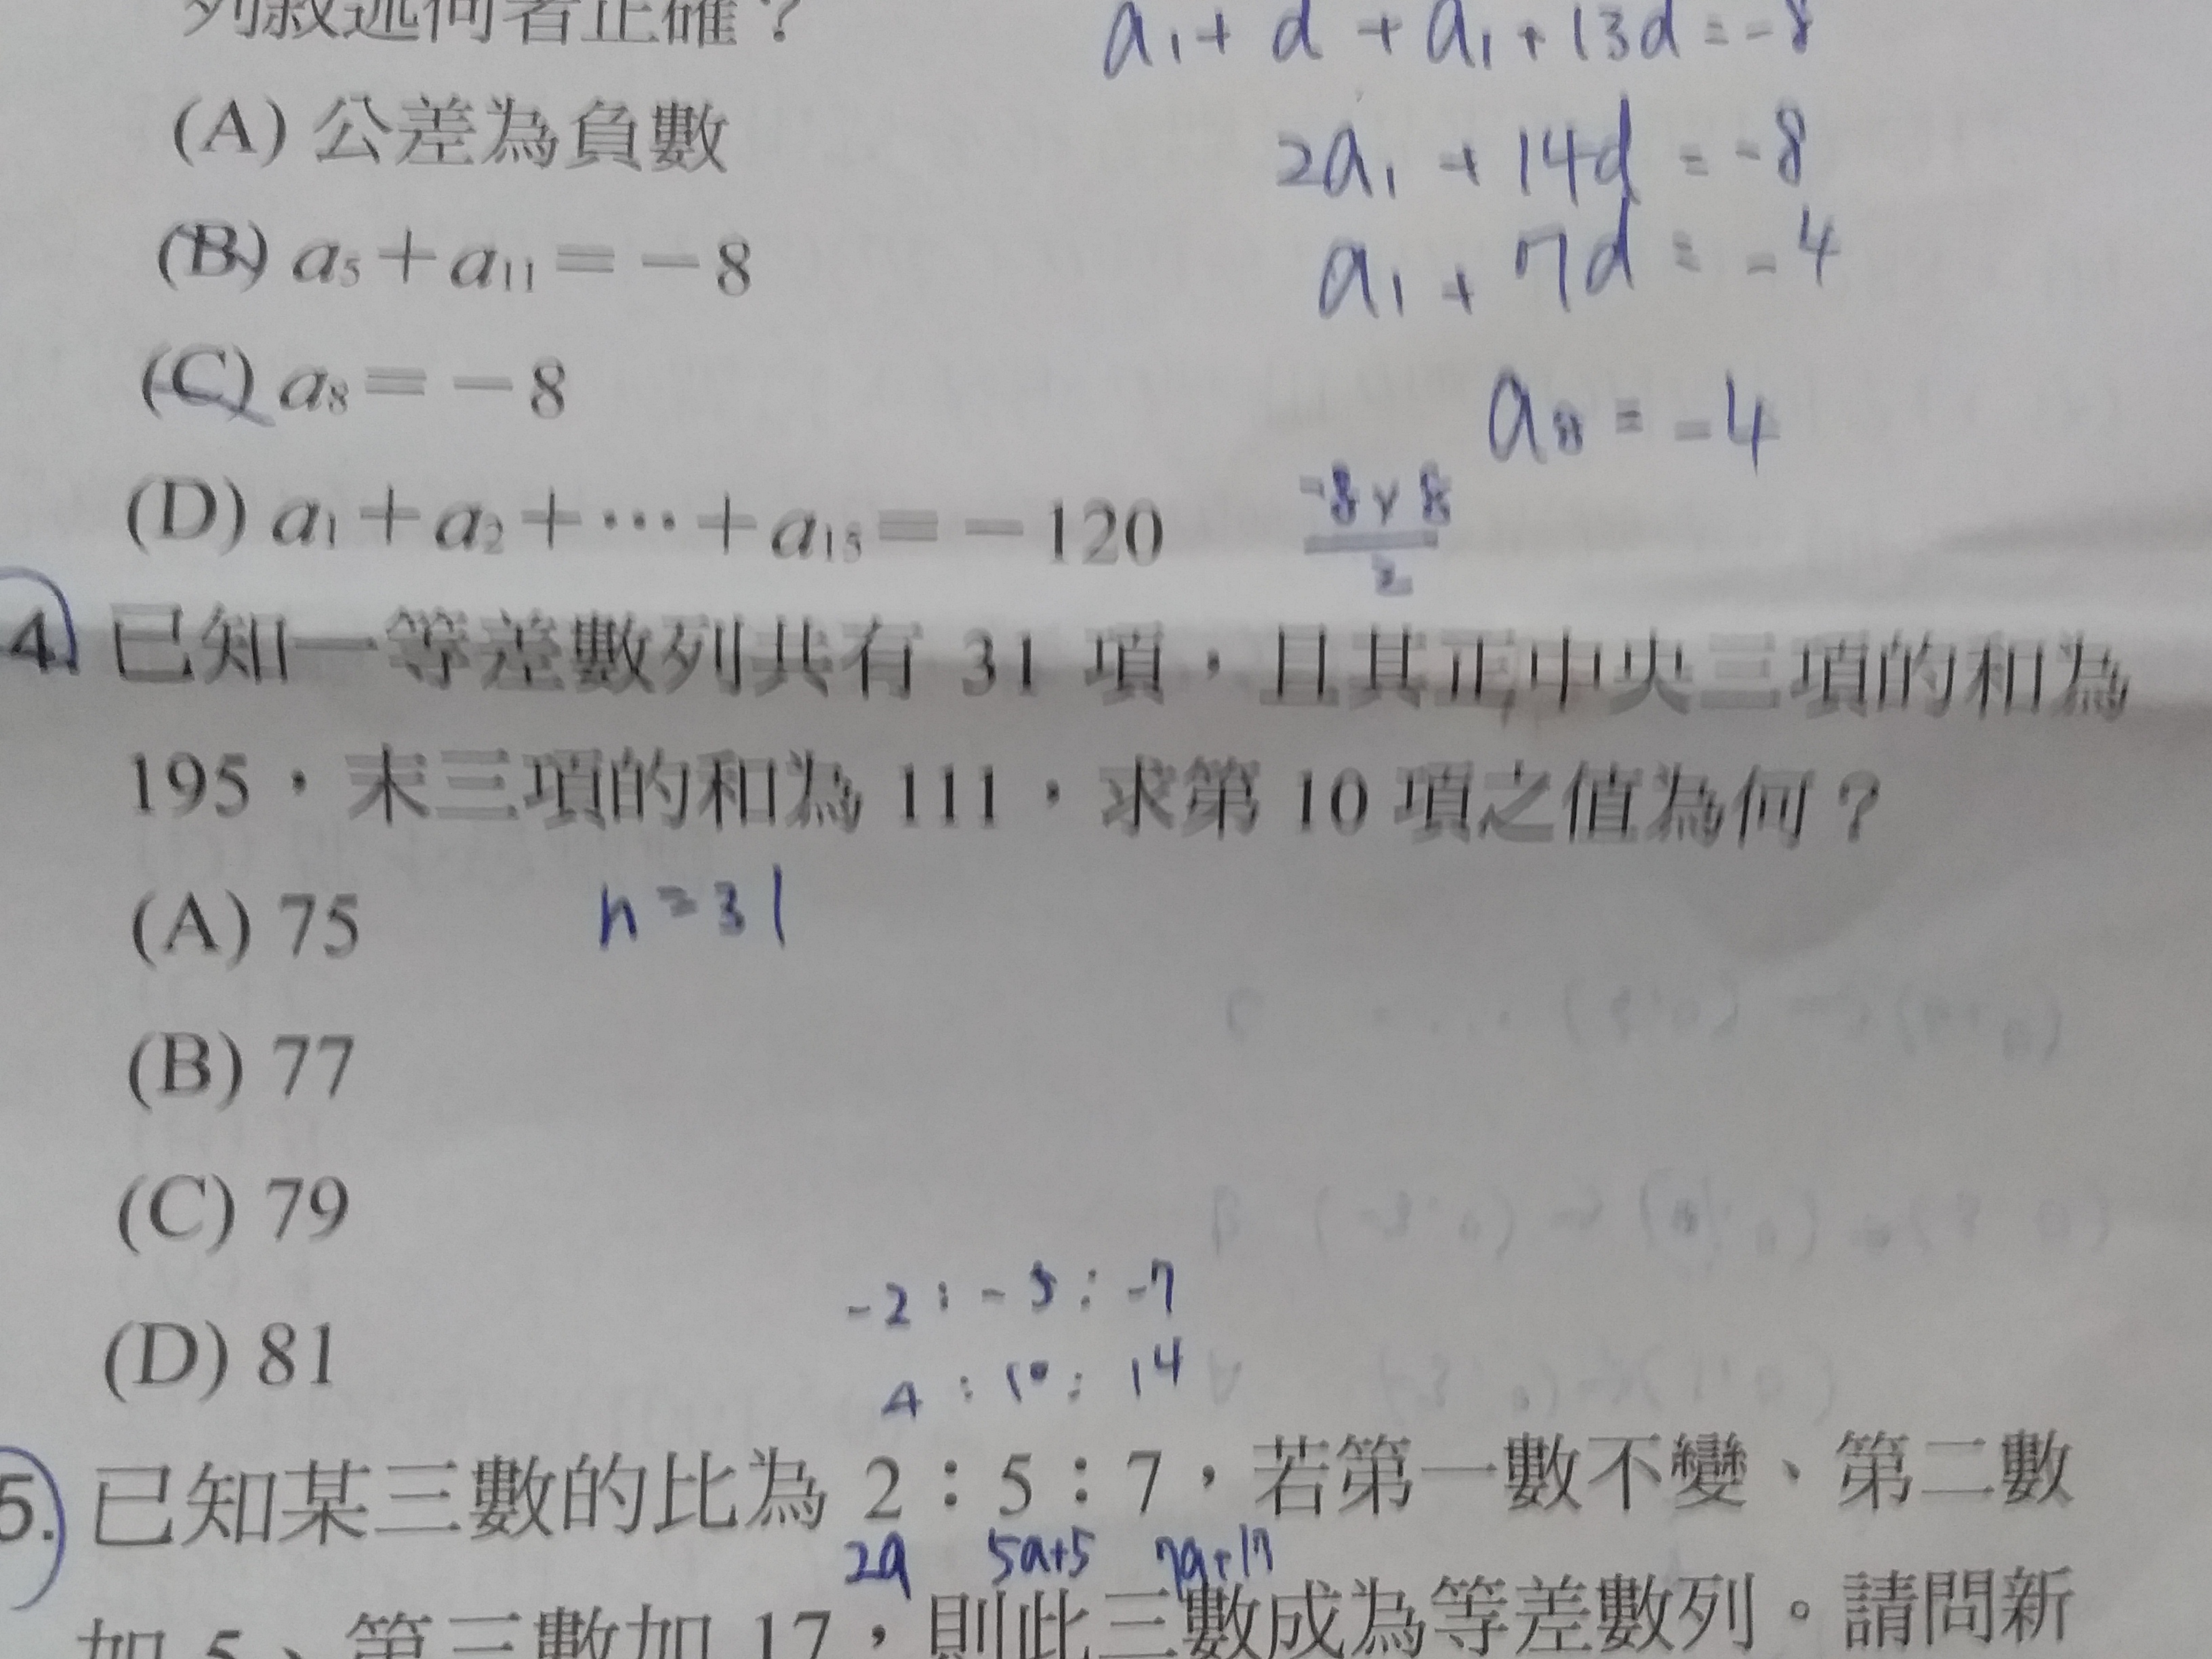 列敘述何者正確？
a₁ + d + a₁ + 13d = -8
(A) 公差為負數
2a₁ + 14d = -8
(B) a₅＋a₁₁＝－8
a₁ + 7d = -4
(C) a₈＝－8
a₈ = -4
(D) a₁＋a₂＋⋯＋a₁₅＝－120
-8 × 8
2
4. 已知一等差數列共有 31 項，且其正中央三項的和為
195，末三項的和為 111，求第 10 項之值為何？
(A) 75
n = 31
(B) 77
(C) 79
-2 : -5 : -7
(D) 81
4 : 10 : 14
5. 已知某三數的比為 2：5：7，若第一數不變、第二數
2a 5a+5 7a+17
加 5、第三數加 17，則此三數成為等差數列。請問新